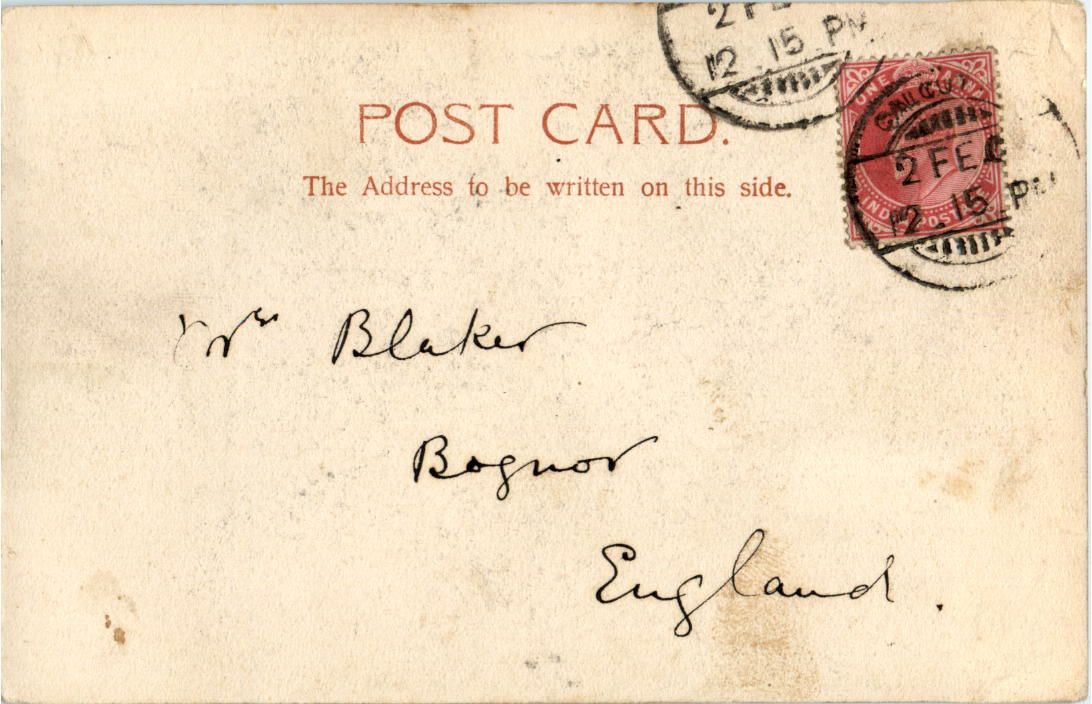 2 FE
12.15 PM
POST CARD.
The Address to be written on this side.
ONE ANNA
CALCUT
2 FE
12.15 PM
INDIA POSTAGE
Mrs Blaker
Bognor
England.